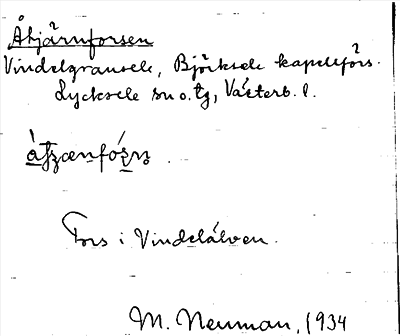 Åhjärnforsen
Vindelgransele, Björksele kapellförs.
Lycksele sn o. tg, Västerb. l.
Fors i Vindelälven.
M. Neuman, 1934